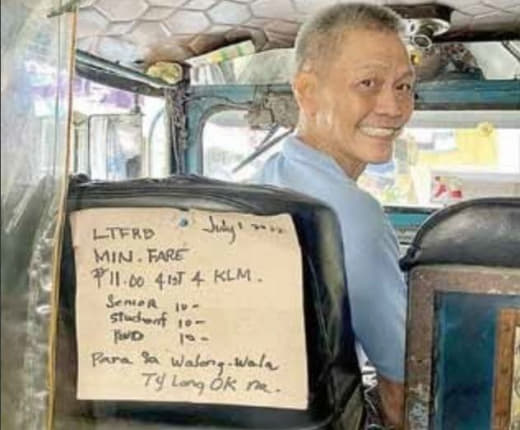 LTFRB July 1 2022
MIN. FARE
₱11.00 4 1ST 4 KLM.
Senior 10-
Student 10-
PWD 10-
Para Sa Walong-Wala
TY Lang OK na.